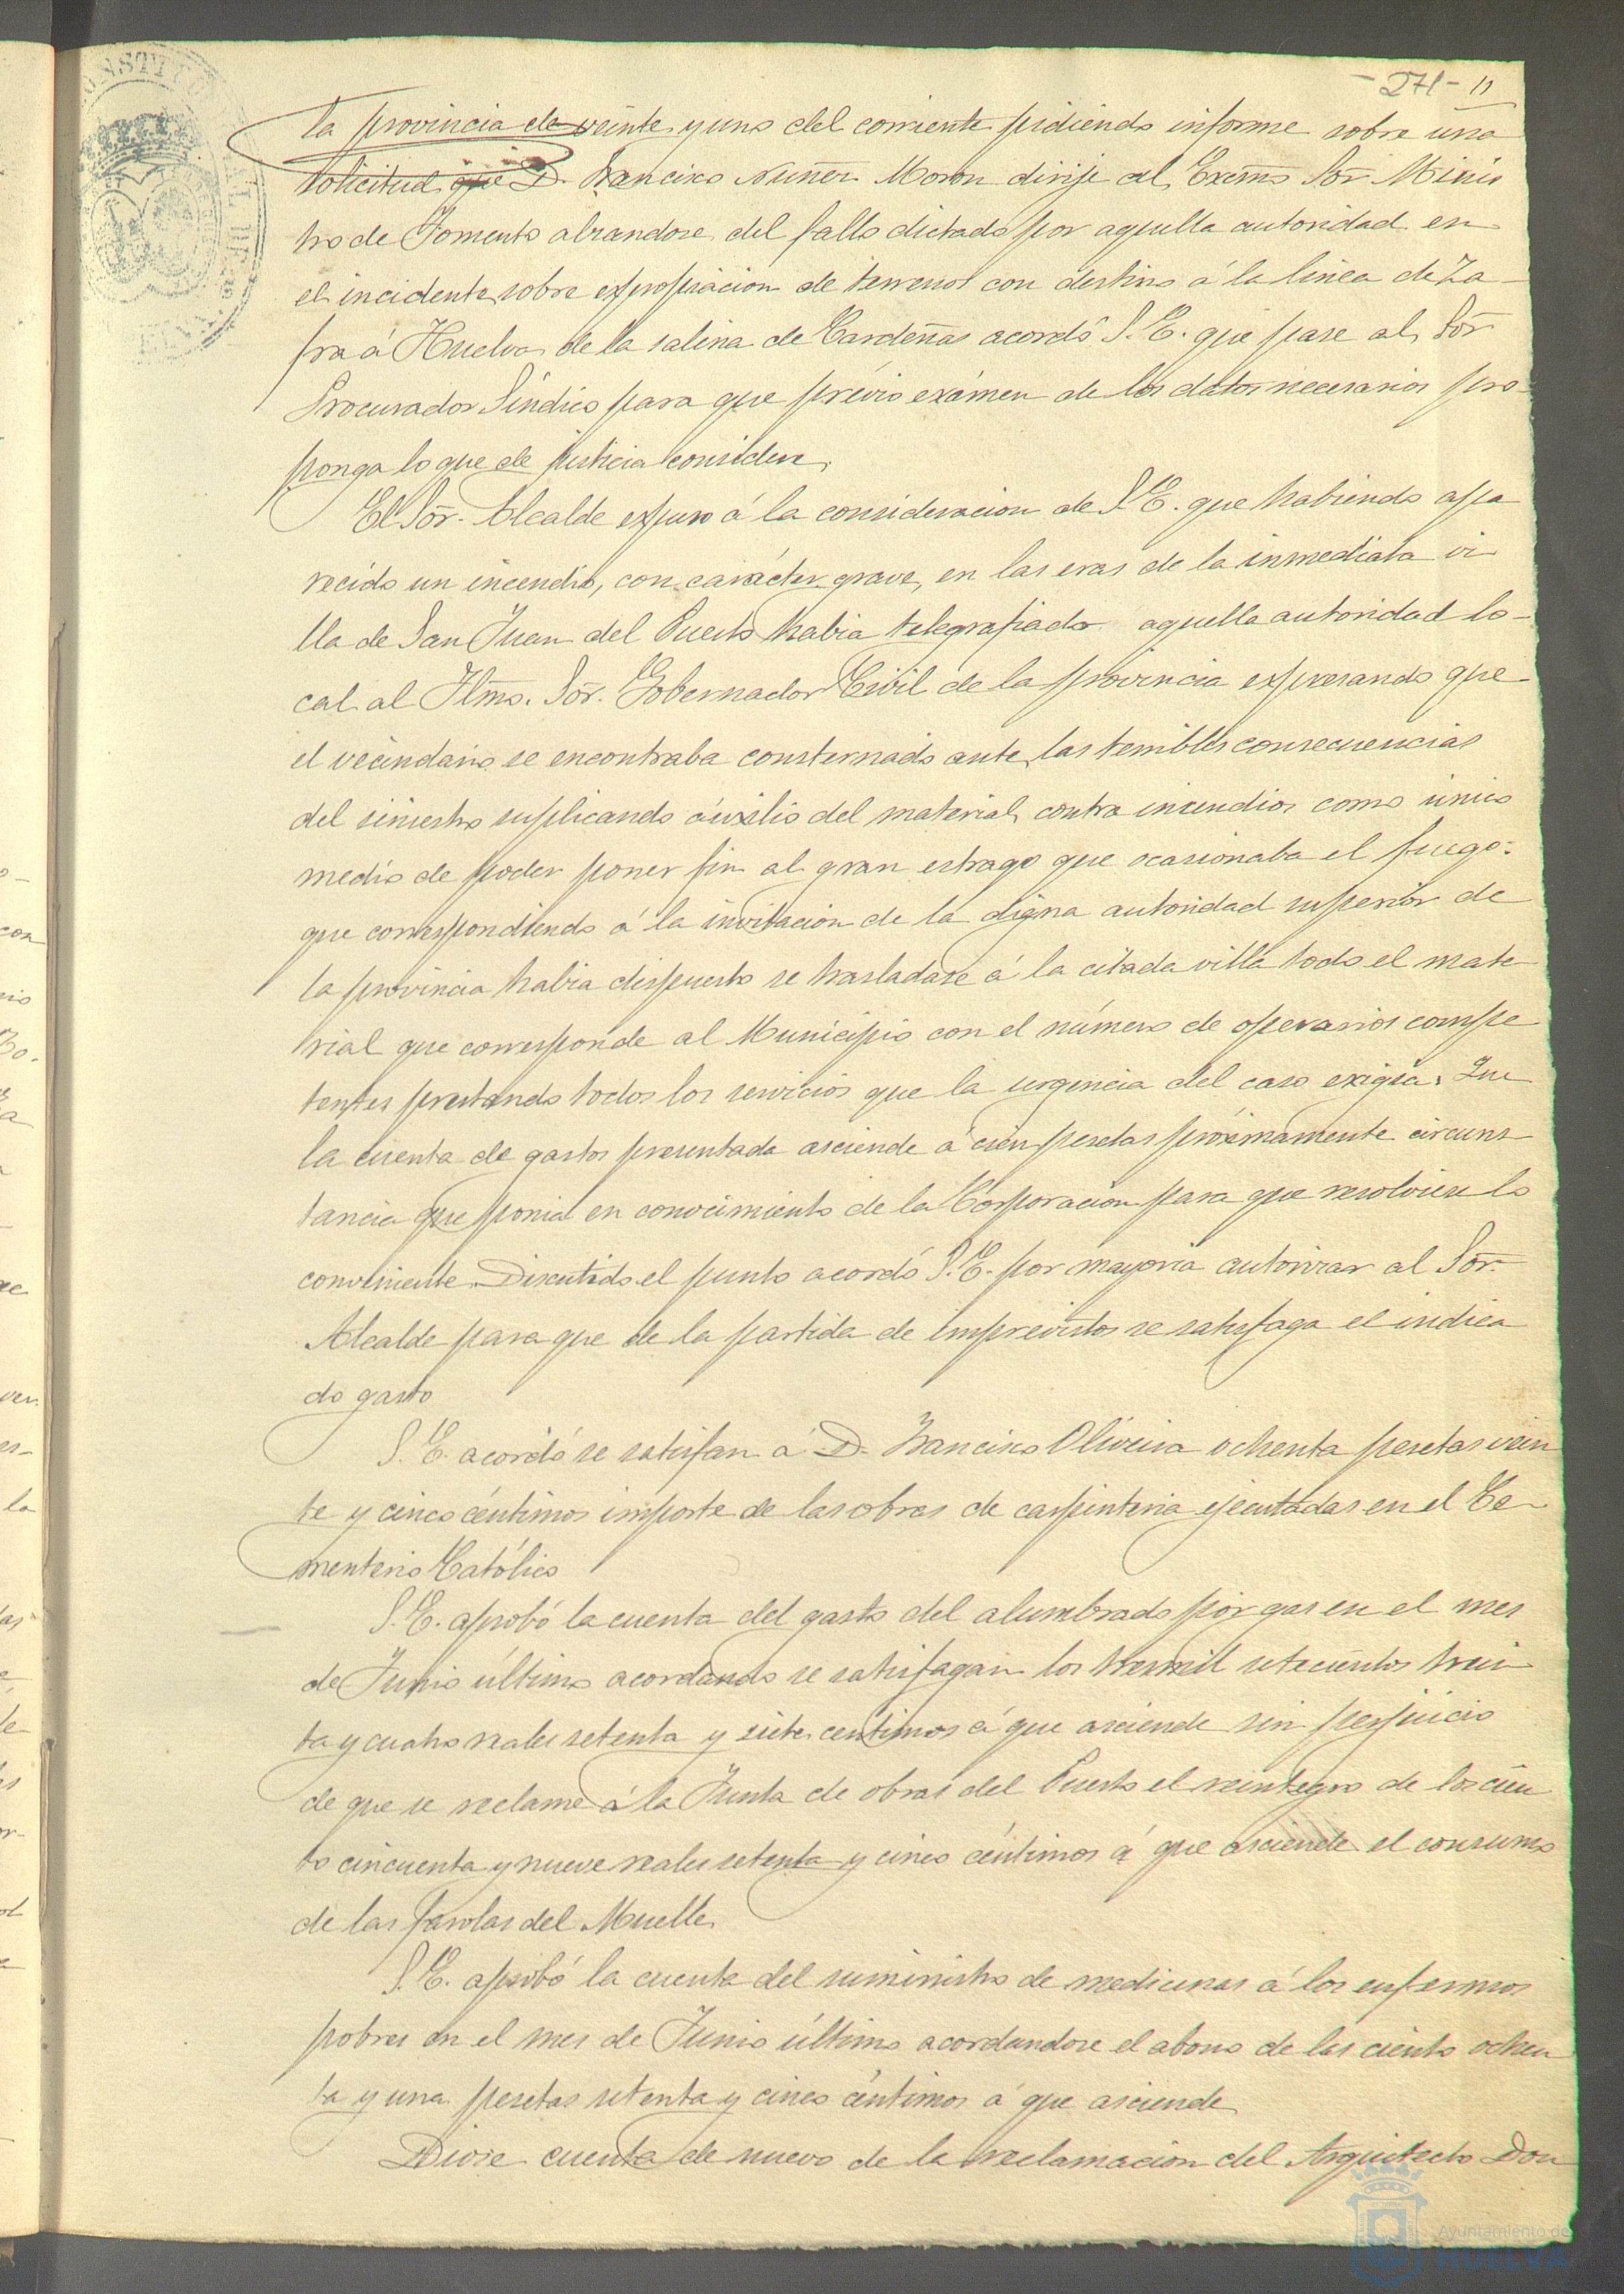 - 271 - 11
la provincia de veinte y uno del corriente pidiendo informe sobre una
solicitud que D. Francisco Nuñez Moron dirije al Excmo Sor Minis
tro de Fomento alzandose del fallo dictado por aquella autoridad en
el incidente sobre expropiacion de terrenos con destino á la linea de Za-
fra á Huelva de la salina de Cardeñas acordó S. E. que pase al Sor
Procurador Sindico para que prévio exámen de los datos necesarios pro-
ponga lo que de justicia considere.
El Sor. Alcalde expuso á la consideracion de S. E. que habiendo apa
recido un incendio, con carácter grave, en las eras de la inmediata vi
lla de San Juan del Puerto habia telegrafiado aquella autoridad lo-
cal al Iltmo. Sor. Gobernador Civil de la provincia expresando que
el vecindario se encontraba consternado ante las terribles consecuencias
del siniestro suplicando áuxilio del material contra incendios como único
medio de poder poner fin al gran estrago que ocasionaba el fuego:
que correspondiendo á la invitacion de la digna autoridad superior de
la provincia habia dispuesto se trasladase á la citada villa todo el mate
rial que corresponde al Municipio con el número de operarios compe
tentes prestando todos los servicios que la urgencia del caso exigia. Que
la cuenta de gastos presentada asciende á cien pesetas próximamente circuns
tancia que ponia en conocimiento de la Corporacion para que resolviese lo
conveniente. Discutido el punto acordó S. E. por mayoria autorizar al Sor.
Alcalde para que de la partida de imprevistos se satisfaga el indica
do gasto
S. E. acordó se satisfan á D. Francisco Oliveira ochenta pesetas vein
te y cinco céntimos importe de las obras de carpinteria ejecutadas en el Ce-
menterio Católico
S. E. aprobó la cuenta del gasto del alumbrado por gas en el mes
de Junio último acordando se satisfagan los tres mil setecientos trein
ta y cuatro reales setenta y siete centimos á que asciende sin perjuicio
de que se reclame á la Junta de obras del Puerto el reintegro de los cien
to cincuenta y nueve reales setenta y cinco céntimos á que asciende el consumo
de las farolas del Muelle.
S. E. aprobó la cuenta del suministro de medicinas á los enfermos
pobres en el mes de Junio último acordandose el abono de las ciento ochen
ta y una pesetas setenta y cinco céntimos á que asciende
Diose cuenta de nuevo de la reclamacion del Arquitecto Don
Ayuntamiento de
HUELVA